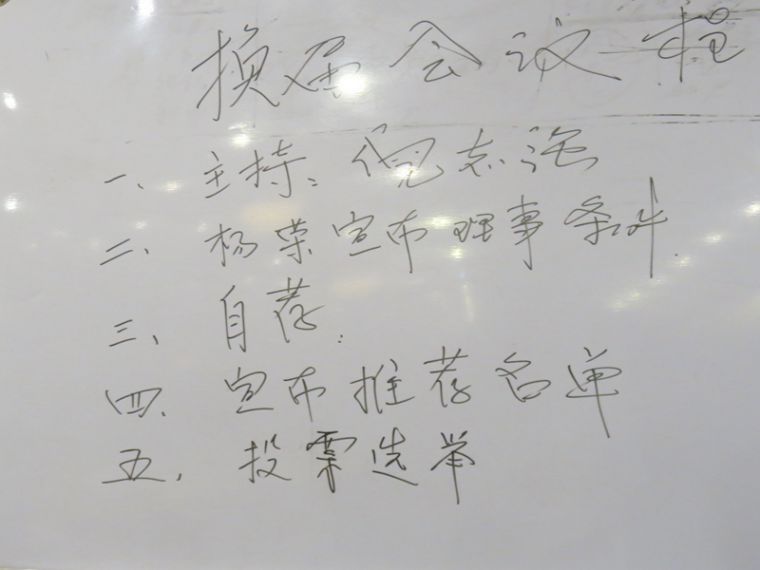 换届会议程
一、主持：倪志强
二、杨荣宣布理事条件
三、自荐
四、宣布推荐名单
五、投票选举